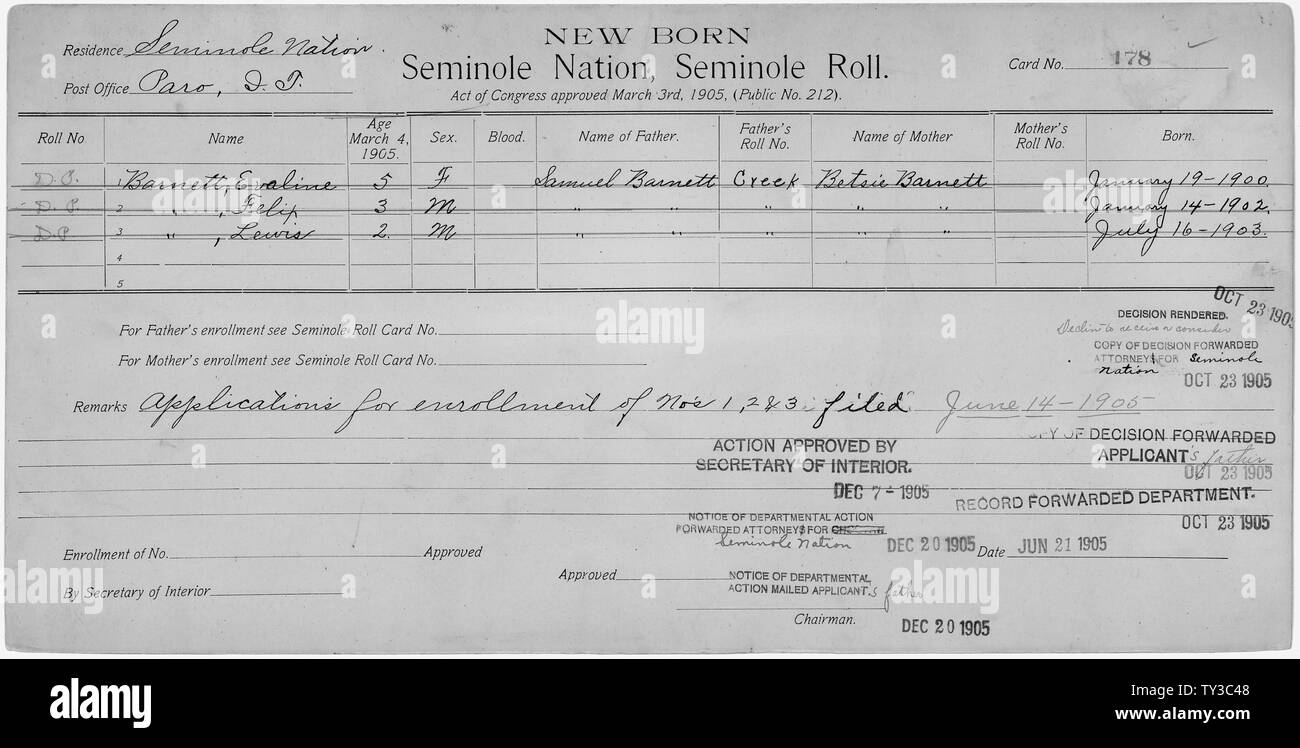 NEW BORN
Seminole Nation, Seminole Roll.
Act of Congress approved March 3rd, 1905, (Public No. 212).
Residence Seminole Nation.
Post Office Paro, I. T.
Card No. 178
Roll No Name Age March 4, 1905. Sex. Blood. Name of Father. Father's Roll No. Name of Mother Mother's Roll No. Born.
D.P. 1 Barnett, Evaline 5 F Samuel Barnett Creek Betsie Barnett January 19-1900.
D.P. 2 " , Felip 3 M " " " " January 14-1902.
D.P. 3 " , Lewis 2. M " " " " July 16-1903.
4
5
For Father's enrollment see Seminole Roll Card No.
For Mother's enrollment see Seminole Roll Card No.
OCT 23 1905
DECISION RENDERED.
Decline to receive or consider
COPY OF DECISION FORWARDED
ATTORNEYS FOR Seminole
Nation
OCT 23 1905
Remarks Applications for enrollment of Nos 1, 2 & 3 filed June 14-1905
COPY OF DECISION FORWARDED
APPLICANT's father
OCT 23 1905
ACTION APPROVED BY
SECRETARY OF INTERIOR.
DEC 7-1905
RECORD FORWARDED DEPARTMENT.
OCT 23 1905
NOTICE OF DEPARTMENTAL ACTION
FORWARDED ATTORNEYS FOR
Seminole Nation
DEC 20 1905
Date JUN 21 1905
Enrollment of No. Approved
By Secretary of Interior
Approved
NOTICE OF DEPARTMENTAL
ACTION MAILED APPLICANT's father
Chairman.
DEC 20 1905
alamy
Image ID: TY3C48
www.alamy.com